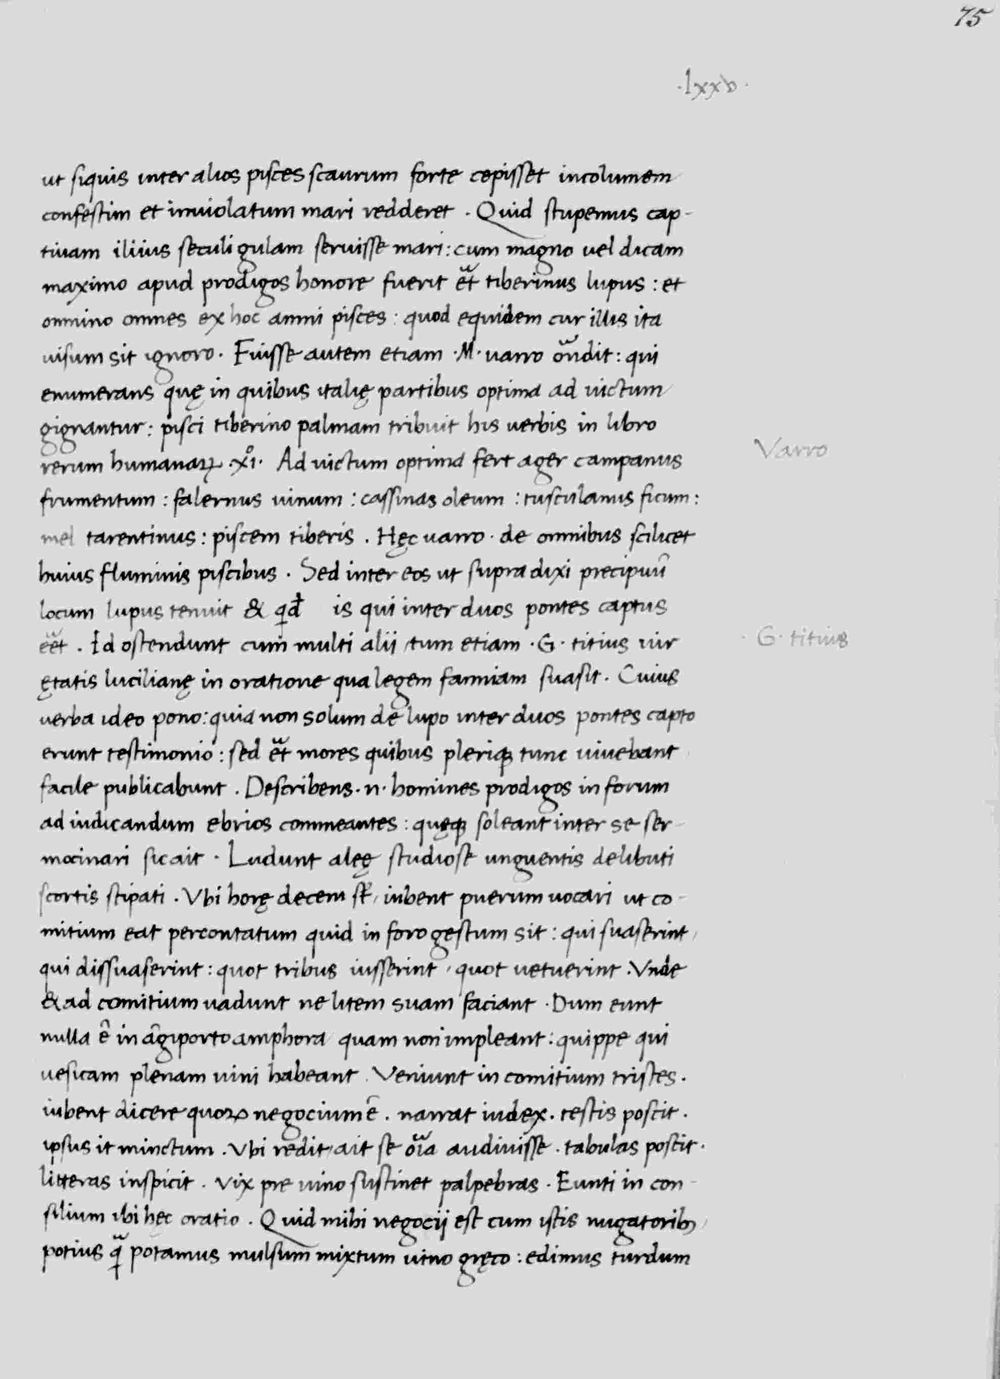 75
·lxxv·
ut siquis inter alios pisces scaurum forte cepisset incolumem
confestim et inuiolatum mari redderet . Quid stupemus cap-
tiuam illius seculi gulam seruisse mari : cum magno uel dicam
maximo apud prodigos honore fuerit et̃ tiberinus lupus : et
omnino omnes ex hoc amni pisces : quod equidem cur illis ita
uisum sit ignoro . Fuisse autem etiam ·M· uarro on̄dit : qui
enumerans quę in quibus italię partibus optima ad uictum
gignantur : pisci tiberino palmam tribuit his uerbis in libro
rerum humanaꝝ ·xi· Ad uictum optima fert ager campanus
Varro
frumentum : falernus uinum : cassinas oleum : tusculanus ficum :
mel tarentinus : piscem tiberis . Hęc uarro · de omnibus scilicet
huius fluminis piscibus . Sed inter eos ut supra dixi precipuū
locum lupus tenuit & qd̄ is qui inter duos pontes captus
eēt . Id ostendunt cum multi alii tum etiam ·G· titius uir
· G· titius
ętatis lucilianę in oratione qua legem fanniam suasit . Cuius
uerba ideo pono : quia non solum de lupo inter duos pontes capto
erunt testimonio : sed et̃ mores quibus pleriqꝫ tunc uiuebant
facile publicabunt . Describens · n · homines prodigos in forum
ad iudicandum ebrios commeantes : quęqꝫ soleant inter se ser-
mocinari sic ait · Ludunt alęę studiose unguentis delibuti
scortis stipati . Vbi horę decem st̄ , iubent puerum uocari ut co-
mitium eat percontatum quid in foro gestum sit : qui suaserint ,
qui dissuaserint : quot tribus iusserint , quot uetuerint . Vnde
& ad comitium uadunt ne litem suam faciant . Dum eunt
nulla ē in āgiporto amphora quam non impleant : quippe qui
uesicam plenam uini habeant . Veniunt in comitium tristes .
iubent dicere quoꝝ negocium ē . narrat iudex . testis poscit .
ipsus it minctum . Vbi redit ait se oīa audiuisse . tabulas poscit .
litteras inspicit . Vix pre uino sustinet palpebras . Eunti in con-
silium ibi hec oratio . Quid mihi negocij est cum istis nugatoribꝫ
potius q̄ potamus mulsum mixtum uino gręco : edimus turdum